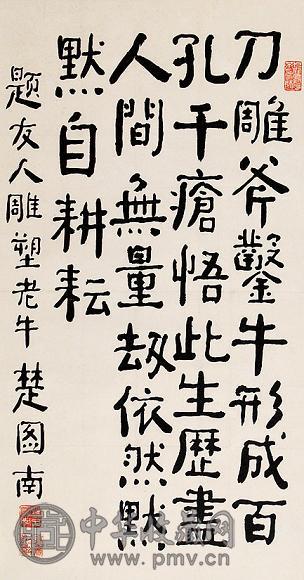 刀雕斧鑿牛形成百
孔千瘡悟此生歷盡
人間無量劫依然默
默自耕耘
題友人雕塑老牛 楚图南
中华收藏网
www.pmv.cn